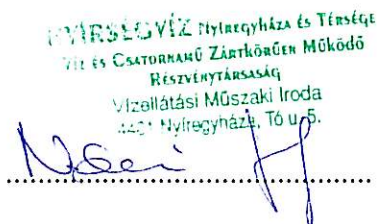 NYÍRSÉGVÍZ Nyíregyháza és Térsége
Víz és Csatornamű Zártkörűen Működő
Részvénytársaság
Vízellátási Műszaki Iroda
4401 Nyíregyháza, Tó u. 5.